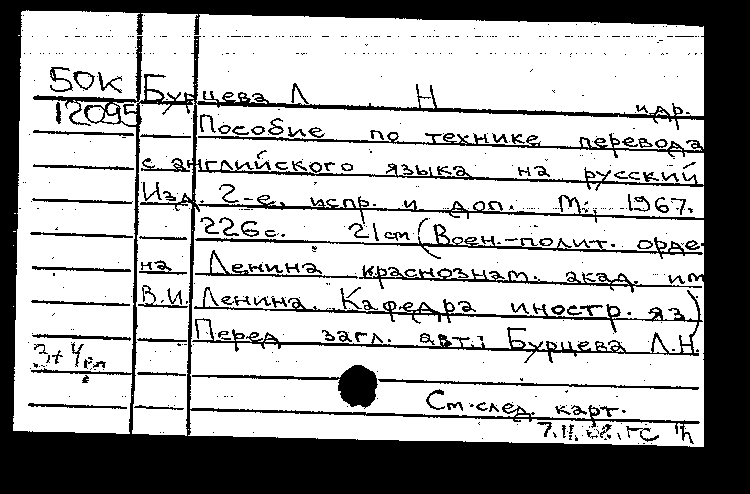 50К Бурцева Л Н идр.
12095 Пособие по технике перевода
с английского языка на русский
Изд. 2-е, испр. и доп. М., 1967.
226с. 21см (Воен.-полит. орде-
на Ленина краснознам. акад. им
В.И. Ленина. Кафедра иностр. яз.)
Перед загл. авт.: Бурцева Л.Н.
3+4
См.след. карт.